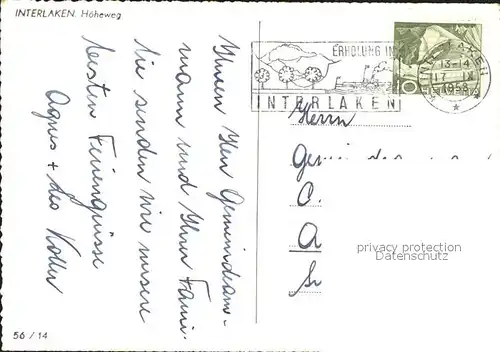 INTERLAKEN. Höheweg
Ihnen Herr Gemeindeam-
mann und Ihrer Fami-
lie senden wir unsere
besten Feriengrüsse
Agnes + Leo Koller
56 / 14
ERHOLUNG IN
INTERLAKEN
INTERLAKEN
13-14
17. IX
1958
10
HELVETIA
Herrn
privacy protection
Datenschutz